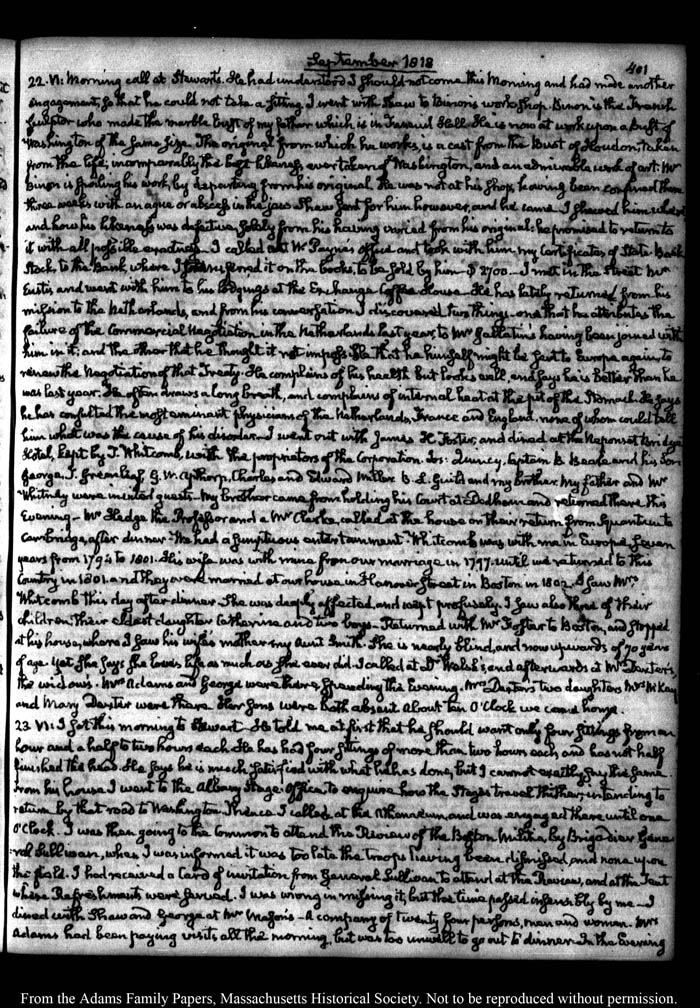 September 1818
401
22. VI: Morning call at Stewart's. He had understood I should not come this Morning and had made another
engagement, so that he could not take a sitting. I went with Shaw to Binon's workshop. Binon is the French
Sculptor who made the marble Bust of my father which is in Faneuil Hall. He is now at work upon a Bust of
Washington of the same size. The original from which he works, is a cast from the Bust of Houdon, taken
from the life; incomparably the best likeness ever taken of Washington, and an admirable work of art. Mr
Binon is spoiling his work, by departing from his original. He was not at his shop, having been confined these
three weeks with an ague or abscess in the jaw. Shaw sent for him however, and he came. I shewed him where
and how his likeness was defective, solely from his having varied from his original: he promised to return to
it with all possible exactness. I called at W. Payne's office and took with him my Certificates of State Bank
Stock, to the Bank, where I transferred it on the books, to be sold by him — $ 2700 — I met in the street Mr
Eustis and went with him to his lodgings at the Exchange Coffee House. He has lately returned from his
mission to the Netherlands, and from his conversation I discovered two things. one that he attributes the
failure of the Commercial Negotiation in the Netherlands last year, to Mr Gallatin's having been joined with
him in it; and the other that he thought it not impossible that he himself might be sent to Europe again, to
renew the Negotiation of that Treaty. He complains of his health but looks well, and says he is better than he
was last year. He often draws a long breath, and complains of internal heat at the pit of the Stomach. He says
he has consulted the most eminent physicians of the Netherlands, France and England, none of whom could tell
him what was the cause of his disorder. I went out with James H. Foster, and dined at the Neponset Bridge
Hotel, kept by T. Whitcomb, with the proprietors of the Corporation. Jos: Quincy, Captain B. Beale and his Son
George, T. Greenleaf, G. W. Apthorp, Charles and Edward Miller B. L. Guild and my brother. My father and Mr
Whitney were invited guests. My brother came from holding his Court at Dedham and returned there this
Evening — Mr Hedge the Professor and a Mr Clarke, called at the house on their return from Squantum to
Cambridge, after dinner. We had a sumptuous entertainment. Whitcomb was with me in Europe seven
years from 1794 to 1801. His wife was with mine from our marriage in 1797. until we returned to this
Country in 1801. and they were married at our house in Hanover Street in Boston in 1802. I saw Mrs
Whitcomb this day after dinner. She was deeply affected, and wept profusely. I saw also three of their
children; their eldest daughter Catherine and two boys. Returned with Mr Foster to Boston, and stopped
at his house, where I saw his wife's mother my Aunt Smith. She is nearly blind, and now upwards of 70 years
of age. Yet she says she loves life as much as she ever did. I called at Dr Welsh's, and afterwards at Mrs Dexter's,
the widow's. Mrs Adams and George were there spending the Evening. Mrs Dexter's two daughters Mrs McKay
and Mary Dexter were there. Her sons were both absent. About ten O'Clock we came home.
23 VI: I sat this morning to Stewart. He told me at first that he should want only four sittings from an
hour and a half to two hours each. He has had four sittings of more than two hours each and has not half
finished the head. He says he is much satisfied with what he has done, but I cannot exactly say the same.
From his house I went to the Albany Stage Office, to enquire how the Stages travel thither; intending to
return by that road to Washington. Thence I called at the Athenaeum, and was engaged there until one
O'Clock. I was then going to the Common to attend the Review of the Boston Militia, by Brigadier Gene-
ral Sullivan, when I was informed it was too late the troops having been dismissed, and none upon
the field. I had received a Card of invitation from General Sullivan to attend at the Review, and at the Tent
where Refreshments were served. I was wrong in missing it, but the time passed insensibly by me — I
dined with Shaw and George at Mr Mason's — A company of twenty four persons, men and women. Mrs
Adams had been paying visits all the morning, but was too unwell to go out to dinner. In the Evening
From the Adams Family Papers, Massachusetts Historical Society. Not to be reproduced without permission.